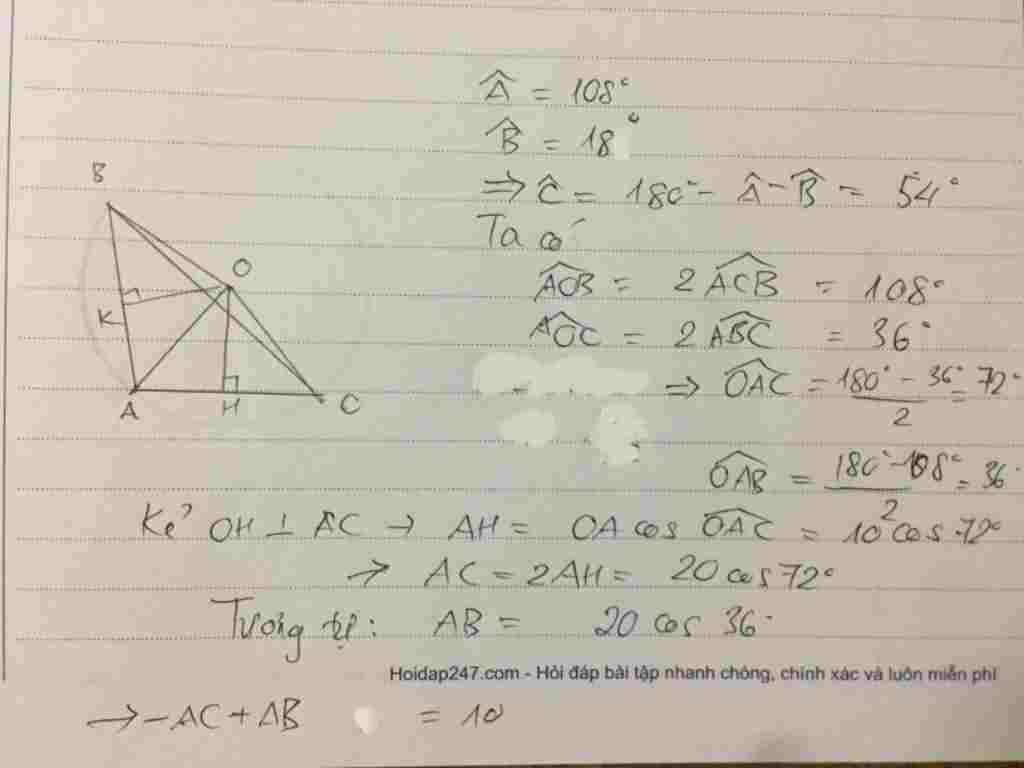 Â = 108°
B̂ = 18°
⇒ Ĉ = 180° - Â - B̂ = 54°
Ta có
B
O
K
A
H
C
AOB = 2 ACB = 108°
AOC = 2 ABC = 36°
⇒ OAC = (180° - 36°)/2 = 72°
OAB = (180° - 108°)/2 = 36
Kẻ OH ⊥ AC → AH = OA cos OAC = 10 cos 72°
→ AC = 2AH = 20 cos 72°
Tương tự: AB = 20 cos 36°
Hoidap247.com - Hỏi đáp bài tập nhanh chóng, chính xác và luôn miễn phí
→ -AC + AB = 10